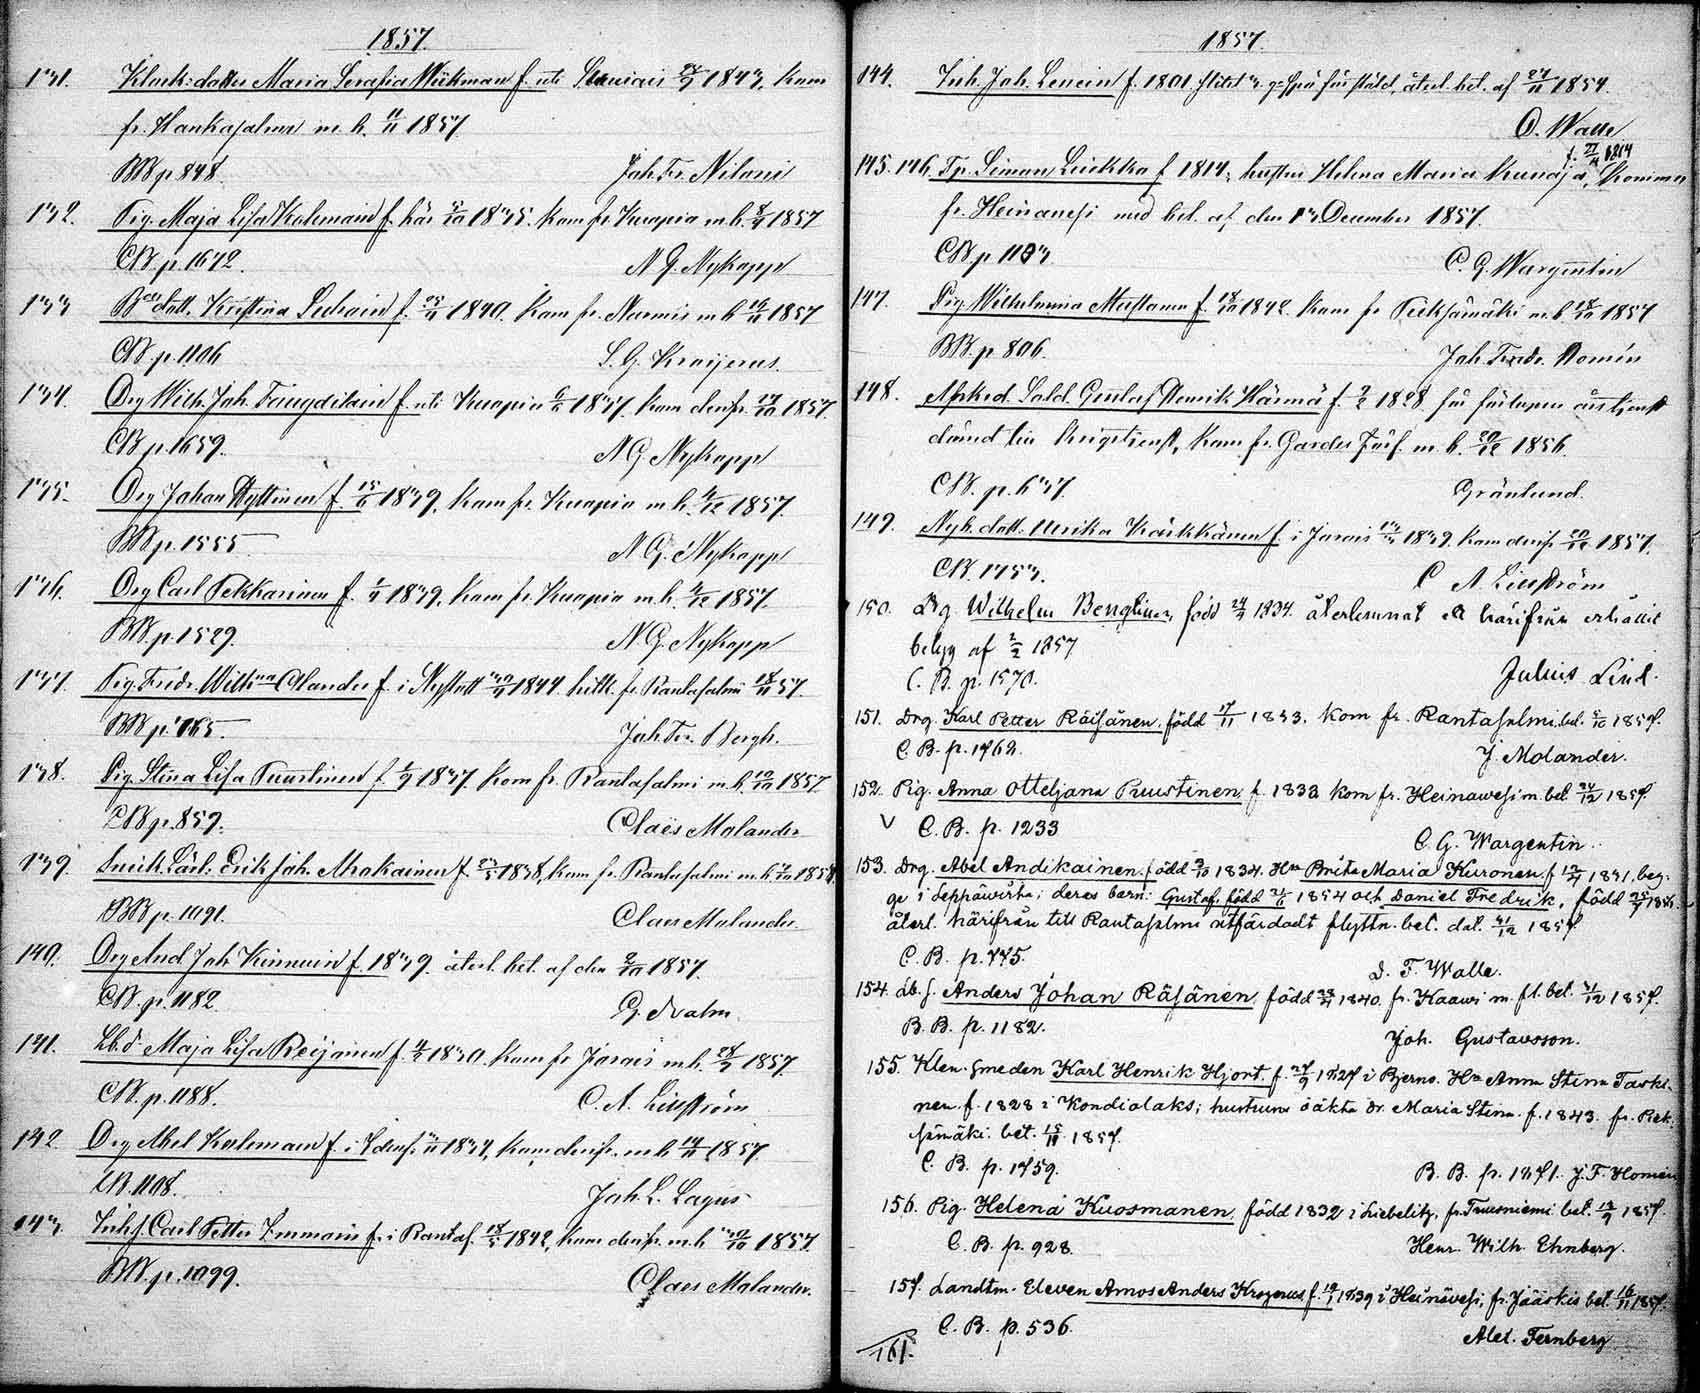 1857.
131. Klock: dotter Maria Serafia Wiikman f. uti 27/9 1843, kom
fr. Hankasalmi m. b. 11/11 1857
BB p 848. Joh. Fr. Nilani
132. Pig. Maja Lisa Kolemain f. här 5/10 1835. kom fr. Kuopio m. b. 8/9 1857
CB. p. 1672. N. G. Nykopp
133 dott. Kristina f. 1840. kom fr. Nurmis m b 1857
CB. p. 1106 L. G. Kroijerus.
134. Drg Wilh. Joh. f. uti Kuopio 1837. kom denfr. 1857.
CB p. 1659. N. G. Nykopp
135. Drg Johan Hyttinen f. 15/11 1839, kom fr. Kuopio m. b. 4/12 1857.
BB p. 1555 N. G. Nykopp
136. Drg Carl Pekkarinen f. 1839, kom fr. Kuopio m. b. 4/12 1857.
BB. p. 1529. N. G. Nykopp
137. Pig. Fredr. Wilh:na Olander f. i Nystatt 1844 hitk. fr. Rantasalmi 18/11 57.
BB p. 165. Joh. Fr. Bergh.
138. Pig. Stina Lisa Tuustinen f. 1837. kom fr. Rantasalmi m. b. 10/10 1857
CB p. 859. Claës Molander
139. Snick. Lärl: Erik Joh. f. 1838, kom fr. Rantasalmi m. b. 1857.
BB p. 1091. Claes Molander
140. Drg And Joh Kinnuin f. 1839. återl. bet. af den 2/10 1857.
CB. p. 1182. G. dvalm.
141. Lb. d. Maja Lisa Reijoinen f. 4/2 1830. kom fr Jorois m. b. 28/9 1857.
CB. p. 1188. C. A. Lillström
142. Drg Abel Kolemain f. i 1834, kom denfr. m b 14/11 1857.
CB. 1108. Joh. L. Lagus
143 Inh. s. Carl Petter Immonen f. i Rantas. 18/5 1842, kom denfr. m. b 30/10 1857.
BB. p. 1099. Claes Molander.
1857.
144. Inh. Joh. f. 1801. återl. bet. af 27/11 1857.
O. Walle
145. 146. Tp. Simon Leikka f 1814; hustru Helena Maria f. 1814, komna
fr. Heinavesi med bet. af den 13 December 1857.
CB. p 1103 C. G. Wargentin
147. Pig. Wilhelmina Mustonen f. 18/10 1842. kom fr Pieksämäki m. b. 18/10 1857
BB. p 806. Joh. Fredr. Homén
148. Afsked. Sold. Gustaf Henrik Härmä f. 9/2 1828 för förlupen
dömd till krigstjenst, kom. fr. m. b. 20/12 1856.
CB. p. 637. Grönlund.
149. Nyb. dott. Ulrika Kärkkänen f. i Jorois 1839. kom denfr 20/12 1857.
CB. 1753. C A. Lillström
150. Drg. Wilhelm Bengtinen, född 24/9 1834. återlemnat ett härifrån erhållit
betyg af 2/2 1857
C. B. p. 1570. Julius Lind.
151. Drg. Karl Petter Räisänen, född 17/11 1833. kom fr. Rantasalmi bet. 5/10 1857.
C. B. p. 1762. J. Molander.
152. Pig. Anna Otteljana Puustinen f. 1833 kom fr. Heinawesi m. bet. 24/12 1857.
V C. B. p. 1233 C. G. Wargentin.
153. Drg. Abel Andikainen född 3/10 1834. Hn Brita Maria Kuronen f 12/4 1831. beg-
ge i Leppäwirta; deras barn: Gustaf, född 21/6 1854 och Daniel Fredrik, född 25/7 1856.
återl. härifrån till Rantasalmi utfärdadt flyttn. bet. dat. 31/12 1857.
C. B. p. 775. D. F. Walle.
154. Lb. s. Anders Johan Räsänen, född 23/4 1840. fr. Kaawi m. fl. bet. 31/12 1857.
B. B. p. 1182. Joh. Gustavsson.
155. Klen. Smeden Karl Henrik Hjort. f. 27/9 1827 i Bjerno. Hn Anna Stina Taski-
nen. f. 1828 i Kondiolaks; hustruns oäkta dr. Maria Stina. f. 1843. fr. Piek-
sämäki. bet. 15/11 1857.
C. B. p. 1759. B. B. p. 1371. J. F. Homén
156. Pig. Helena Kuosmanen, född 1832 i Liebelitz, fr. Tuusniemi bet. 12/9 1857.
C. B. p. 928. Henr. Wilh. Ehnberg.
157. Landtm. Eleven Amos Anders Krogerus f. 1839 i Heinävesi, fr. Jääskis bet. 16/11 1857.
C. B. p. 536. Alex. Fernberg
161.